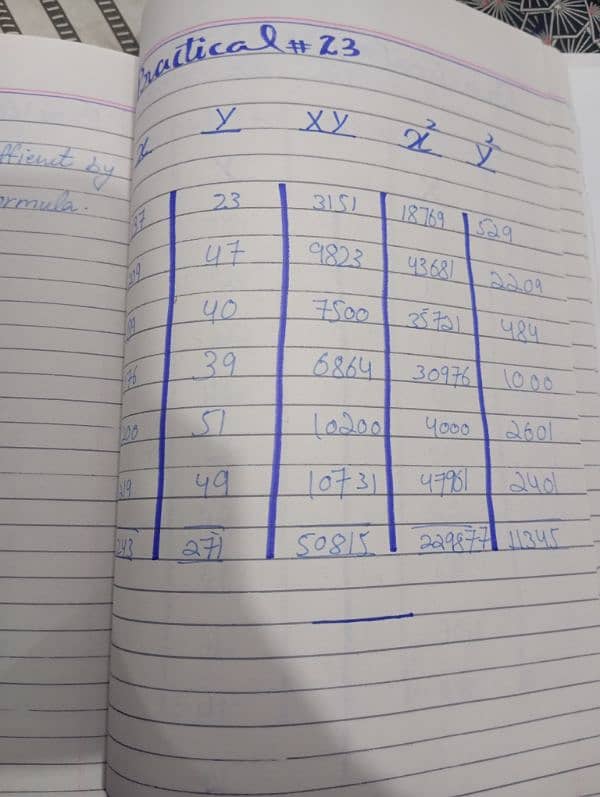 fficient by
ormula.
Practical # 23
x y xy x² y²
37 23 3151 18769 529
09 47 9823 43681 2209
89 40 7500 35721 484
76 39 6864 30976 1000
200 51 10200 4000 2601
219 49 10731 47961 2401
243 271 50815 229877 11345